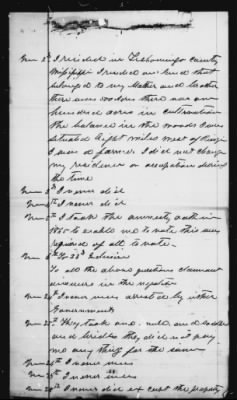 Ans 2d I resided in Tishomingo County
Mississippi I resided on land that
belonged to my Mother and brother
there were wooders there was one
hundred acres in cultivation
the balance in the woods I was
situated Eight miles west of
I was a farmer. I did not change
my residence or occupation during
the time
Ans 3d I never did
Ans 4th I never did
Ans 5th I took the amnesty oath in
1865 to enable me to vote this was
required of all to vote.
Ans 6th To 23d Inclusive
To all the above questions claimant
answers in the negative
Ans 24th I never was arrested by either
Governments
Ans 25th They took one mule and saddle
and bridle they did not pay
me any thing for the same
Ans 26th I never was
Ans 27th I never was
Ans 28th I never did except the property